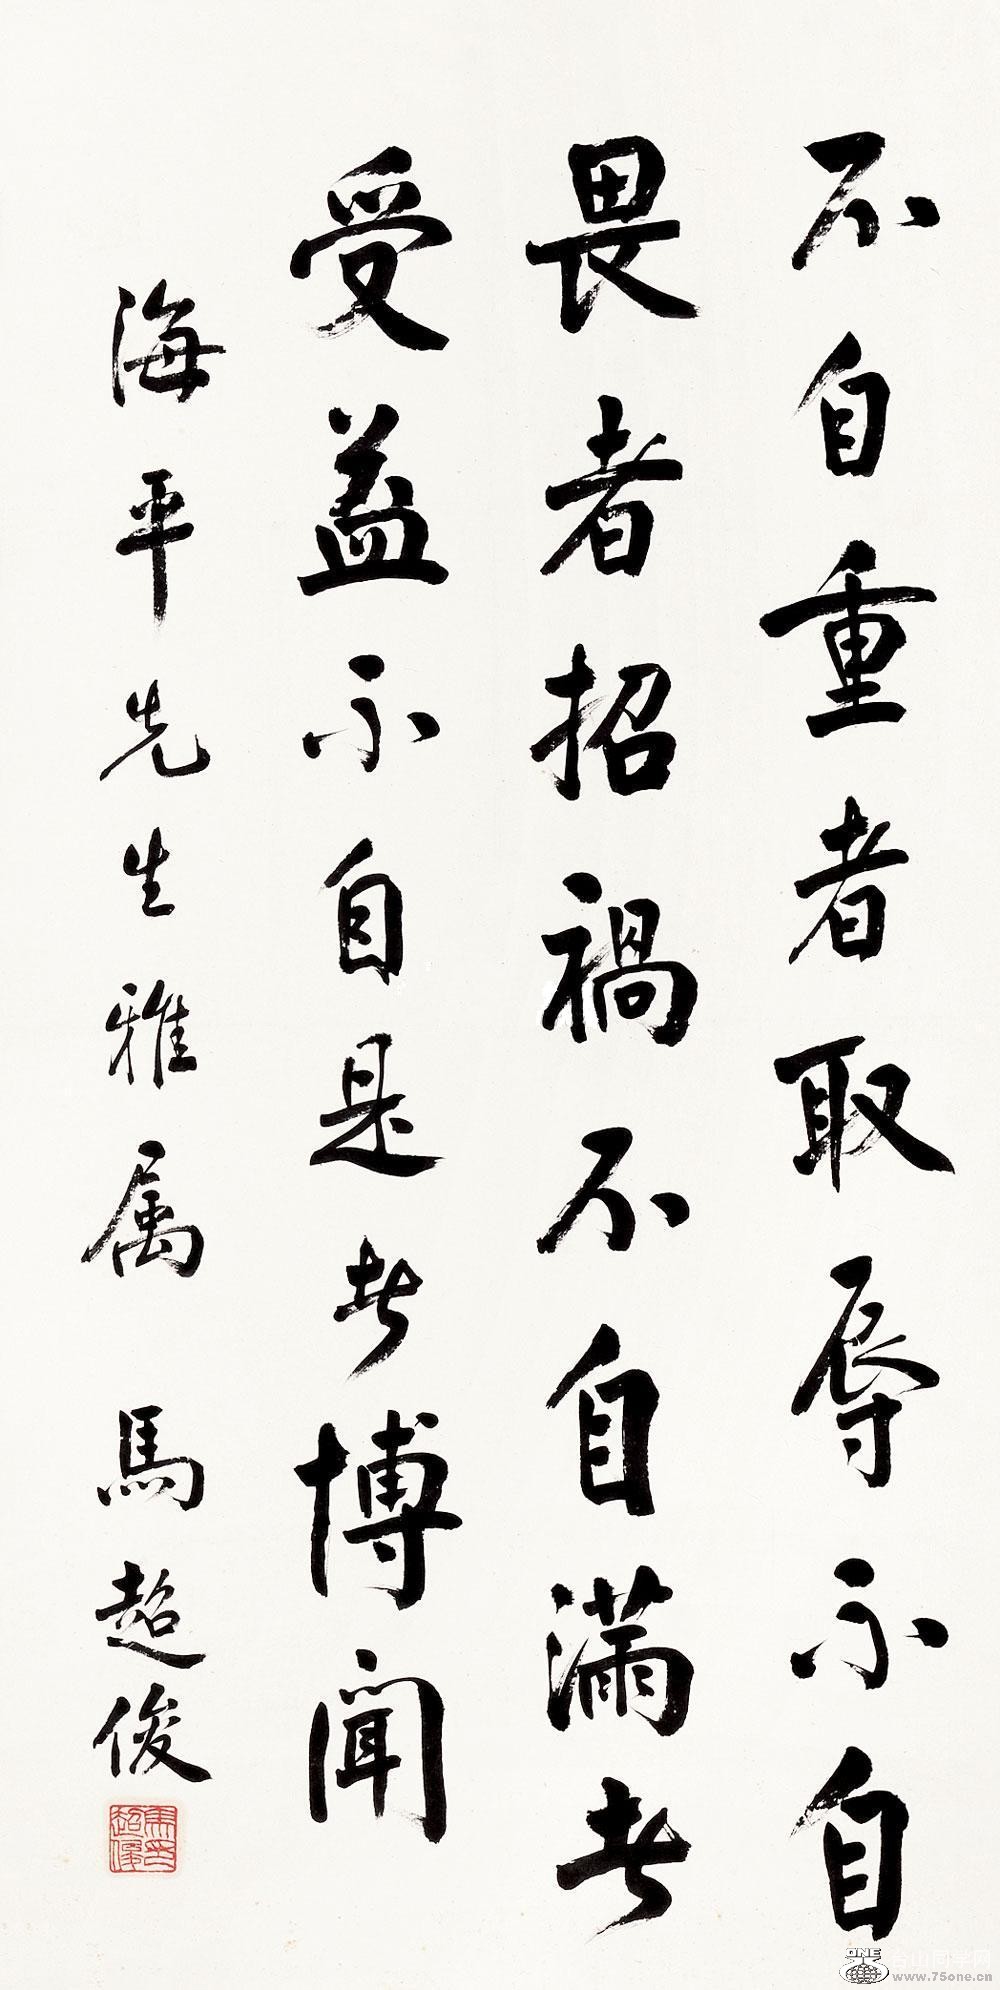 不自重者取辱不自
畏者招禍不自滿者
受益不自是者博聞
海平先生雅属 馬超俊
馬超俊印
ONE
台山同学网
www.75one.cn